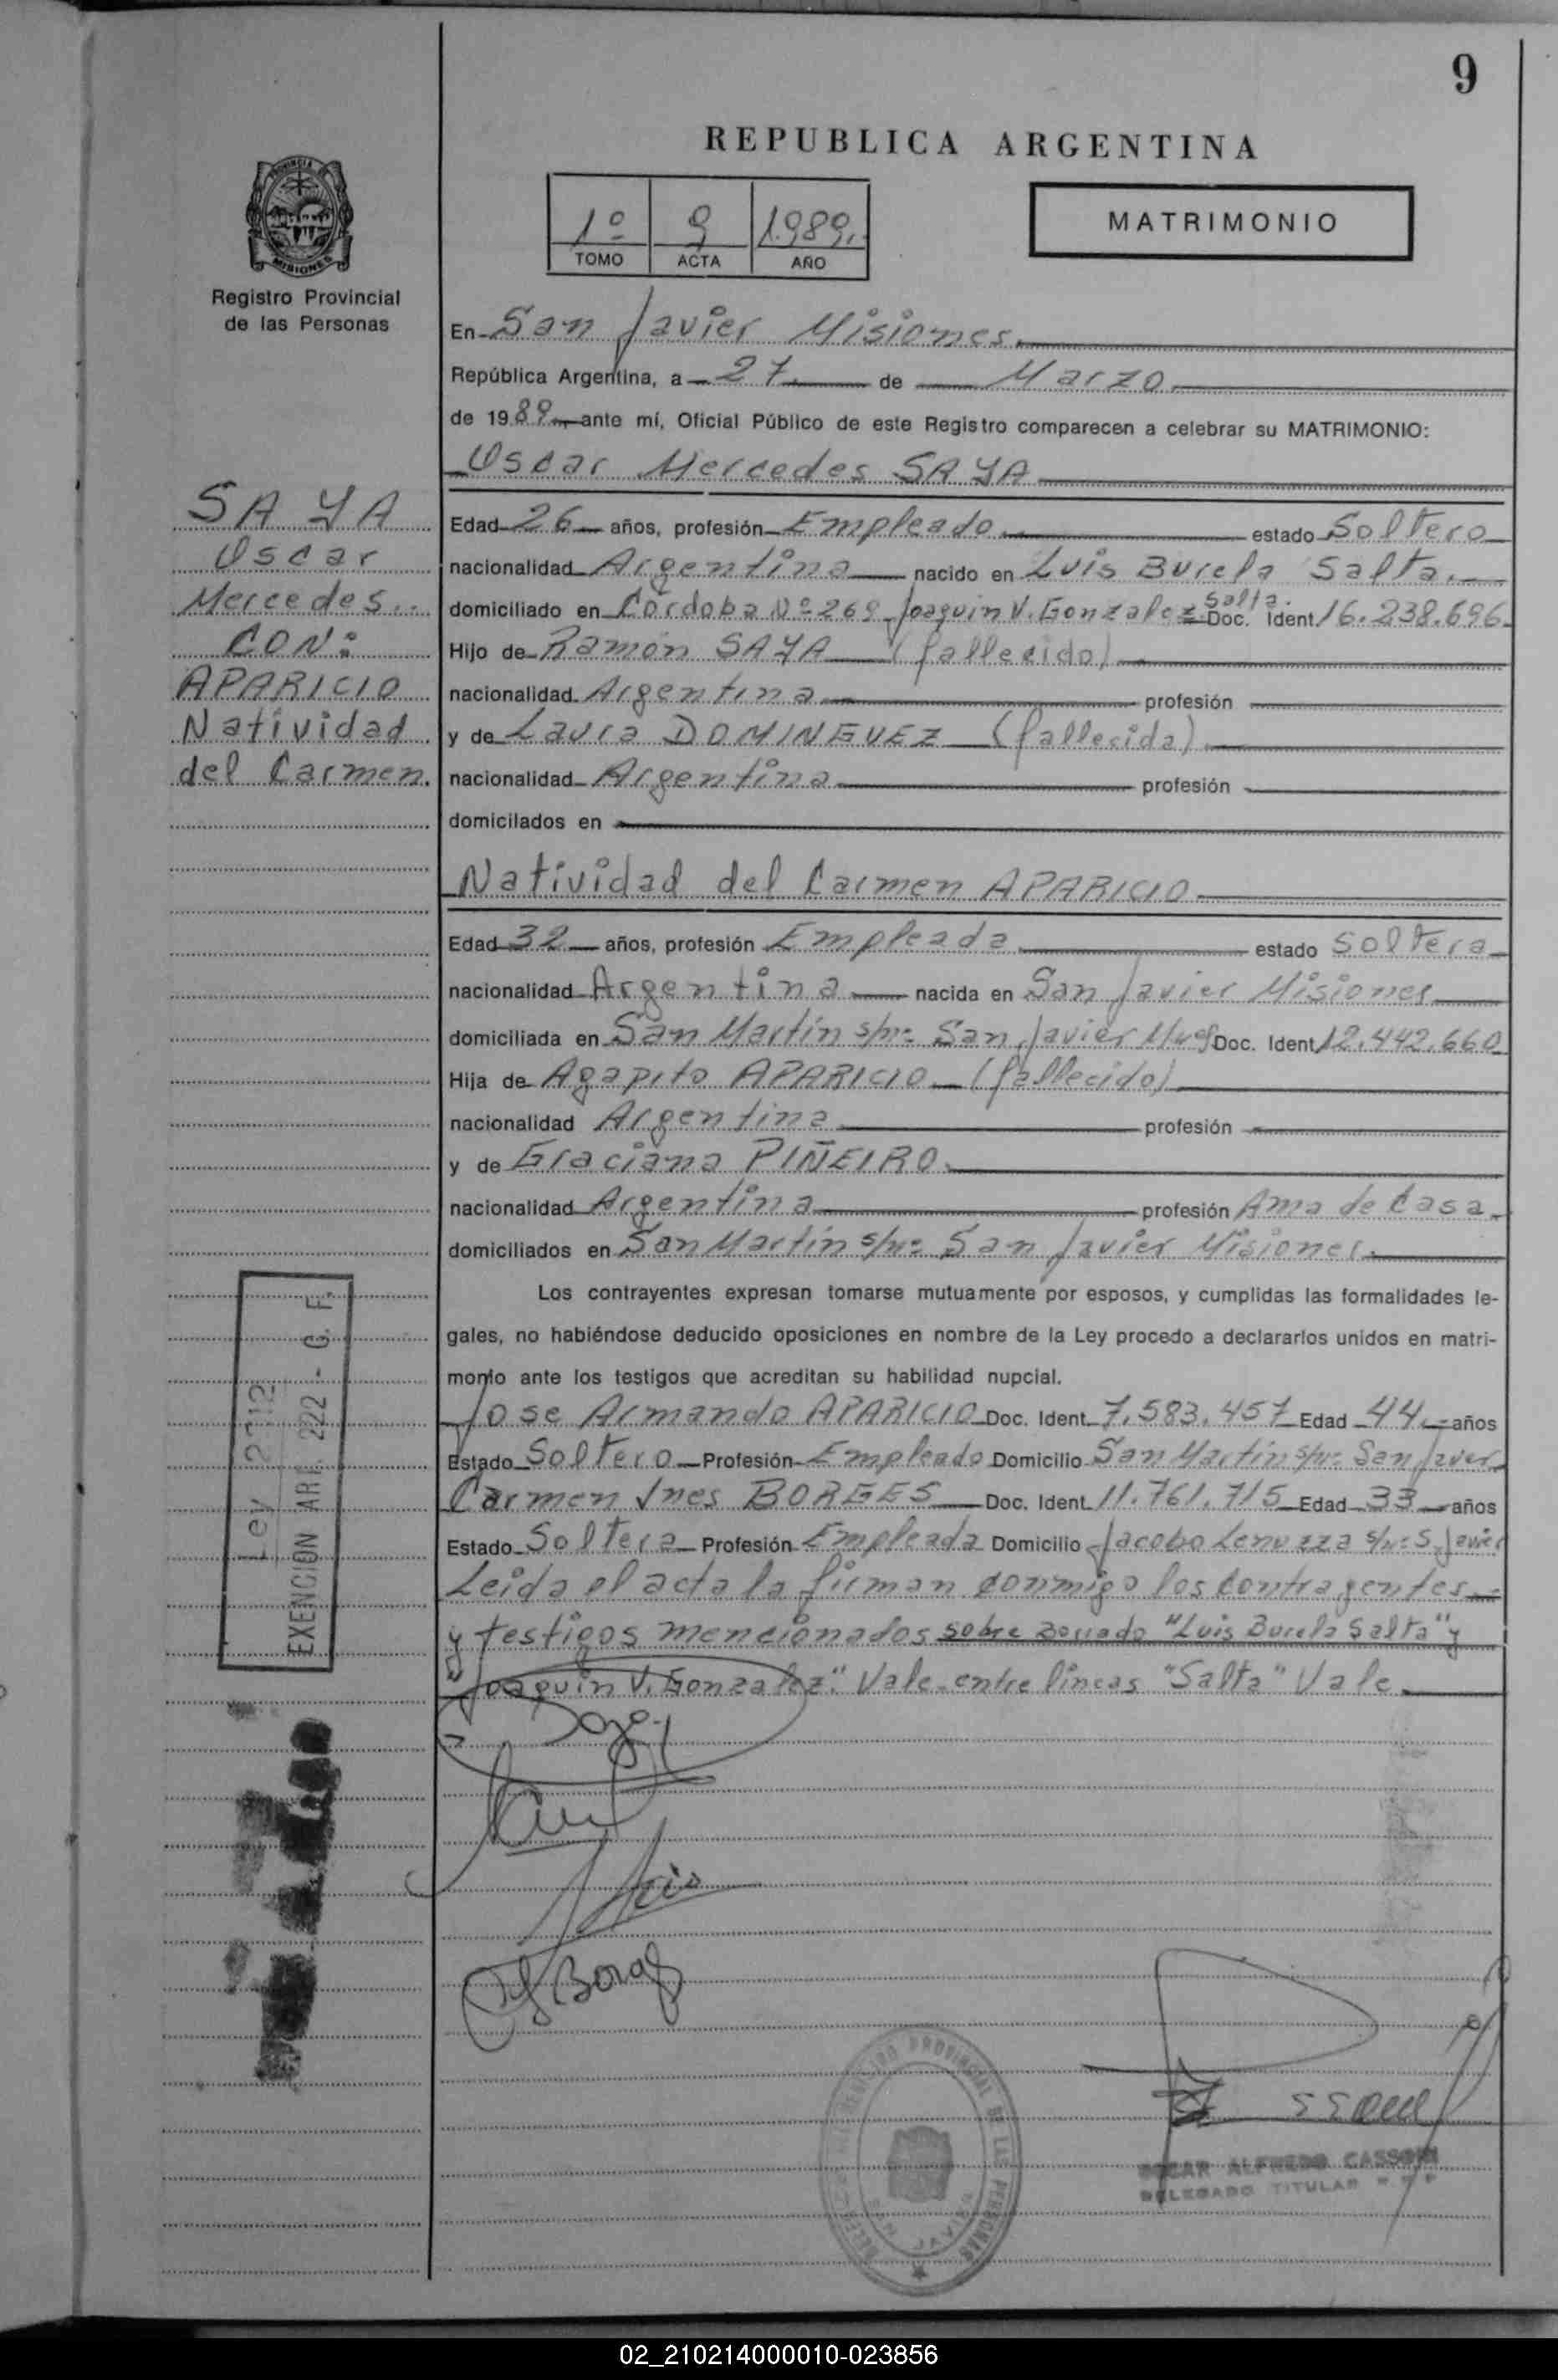 9
REPUBLICA ARGENTINA
1º 9 1989,-
TOMO ACTA AÑO
MATRIMONIO
PROVINCIA DE
MISIONES
Registro Provincial
de las Personas
En San Javier Misiones
República Argentina, a 27 de Marzo
de 1989 ante mí, Oficial Público de este Registro comparecen a celebrar su MATRIMONIO:
Oscar Mercedes SAYA
SAYA
Oscar
Mercedes..
CON:
APARICIO
Natividad
del Carmen.
Edad 26 años, profesión Empleado estado Soltero
nacionalidad Argentina nacido en Luis Burela Salta.
Salta.
domiciliado en Córdoba Nº 269 Joaquin V. Gonzalez Doc. Ident 16.238.696
Hijo de Ramón SAYA (fallecido)
nacionalidad Argentina profesión
y de Laura DOMINGUEZ (fallecida)
nacionalidad Argentina profesión
domicilados en
Natividad del Carmen APARICIO
Edad 32 años, profesión Empleada estado soltera
nacionalidad Argentina nacida en San Javier Misiones
domiciliada en San Martín s/nº San Javier Mnes Doc. Ident 12.442.660
Hija de Agapito APARICIO (fallecido)
nacionalidad Argentina profesión
y de Graciana PIÑEIRO
nacionalidad Argentina profesión Ama de Casa
domiciliados en San Martín s/nº San Javier Misiones.
Los contrayentes expresan tomarse mutuamente por esposos, y cumplidas las formalidades le-
gales, no habiéndose deducido oposiciones en nombre de la Ley procedo a declararlos unidos en matri-
monio ante los testigos que acreditan su habilidad nupcial.
Jose Armando APARICIO Doc. Ident. 7.583.457 Edad 44.- años
Estado Soltero Profesión Empleado Domicilio San Martín s/nº San Javier
Carmen Ines BORGES Doc. Ident. 11.761.715 Edad 33 años
Estado Soltera Profesión Empleada Domicilio Jacobo Lenuzza s/nº S. Javier
Leida el acta la firman conmigo los contrayentes
y testigos mencionados sobre Borrado "Luis Burela Salta" y
"Joaquin V. Gonzalez." Vale-entre líneas "Salta" Vale
Ley 2712
EXENCION ART. 222 - G. F.
REGISTRO PROVINCIAL DE LAS PERSONAS
SAN JAVIER
OSCAR ALFREDO CASSONI
DELEGADO TITULAR R.P.P
02_210214000010-023856